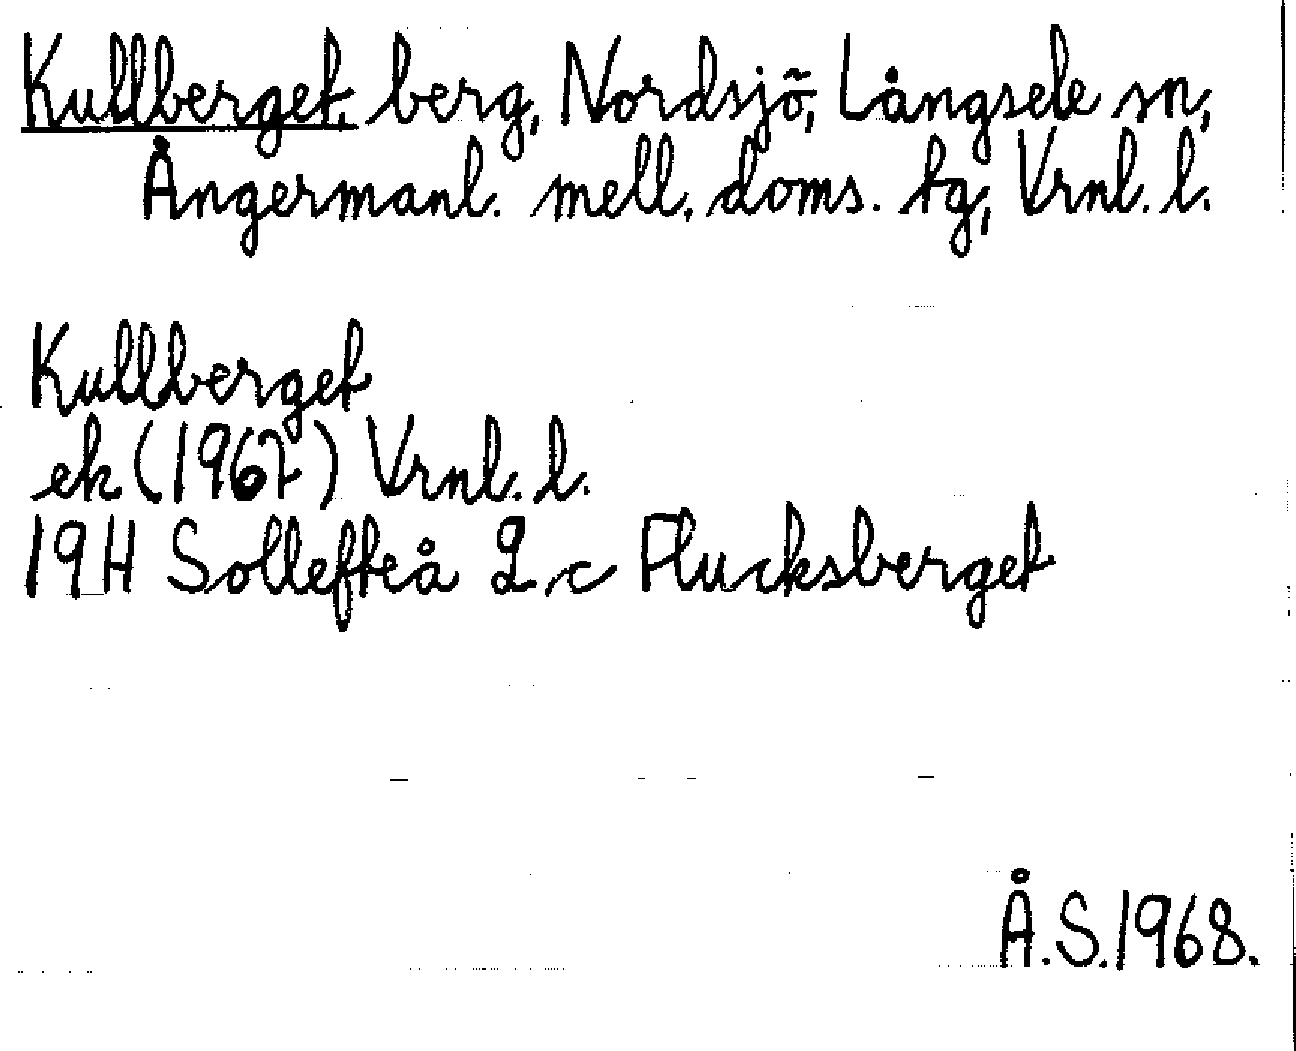 Kullberget, berg, Nordsjö, Långsele sn,
Ångermanl. mell. doms. tg, Vrnl. l.
Kullberget
ek (1967) Vrnl. l.
19H Sollefteå 2 c Flucksberget
Å.S.1968.